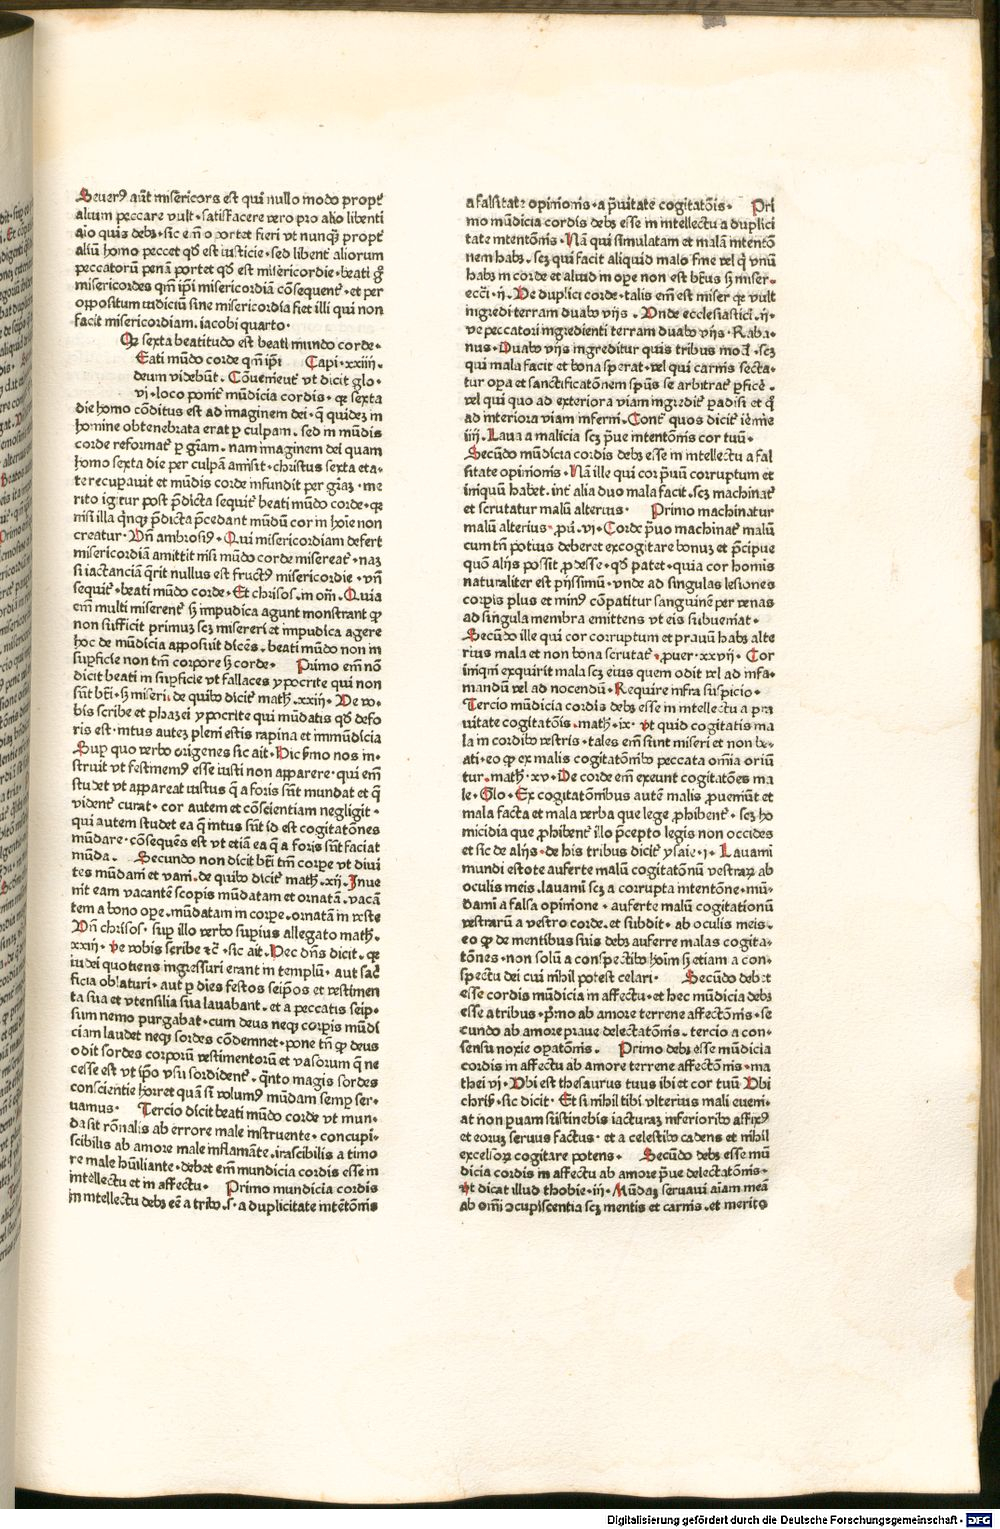 Seuerꝰ aūt misēricors est qui nullo modo propt̄
alium peccare vult · satisfacere vero pro alio libenti
aio quis debꝫ · sic em̄ oportet fieri vt nunqꝫ propt̄
aliū homo peccet qd̄ est iusticie · sed libent̄ aliorum
peccatorū penā portet qd̄ est misericordie · beati gͦ
misericordes qm̄ ip̄i misericordiā cōsequent̄ · et per
oppositum iudiciū sine misericordia fiet illi qui non
facit misericordiam. iacobi quarto ·
Qꝫ sexta beatitudo est beati mundo corde ·
Eati mūdo corde qm̄ ip̄i Capi · xxiiii ·
deum videbūt. Cōueniēt̄ vt dicit glo ·
vi · loco ponit̄ mūdicia cordis · qꝛ sexta
die homo cōditus est ad imaginem dei · q̄ quidez in
homine obtenebrata erat ꝑ culpam. sed in mūdis
corde reformat̄ ꝑ grām. nam imaginem dei quam
homo sexta die per culpā amisit · christus sexta eta ·
te recuperauit et mūdis corde infundit per grāꝫ · me
rito igitur post p̄dicta sequit̄ beati mūdo corde · qꝛ
nisi illa q̄nqꝫ p̄dicta p̄cedant mūdū cor in hoīe non
creatur · Vn̄ ambrosiꝰ · Qui misericordiam defert
misericordiā amittit nisi mūdo corde misereat̄ · naꝫ
si iactanciā q̄rit nullus est fructꝰ misericordie · vn̄
sequit̄ · beati mūdo corde · Et chrisos. in om̄. Quia
em̄ multi miserent̄ sꝫ impudica agunt monstrant ꝙ
non sufficit primuꝫ scꝫ misereri et impudica agere
hoc de mūdicia apposuit dicēs. beati mūdo non in
suꝑficie non tm̄ corpore sꝫ corde · Primo em̄ nō
dicit beati in suꝑficie vt fallaces ypocrite qui non
sūt bt̄i · sꝫ miseri · de quibꝰ dicit̄ math̄. xxiii · Ve vo ·
bis scribe et pharizei ypocrite qui mūdatis qd̄ defo
ris est · intus autez pleni estis rapina et immūdicia
Suꝑ quo verbo origenes sic ait · Hic ꝑmo nos in ·
struit vt festinemꝰ esse iusti non apparere · qui em̄
studet vt appareat iustus q̄ a foris sūt mundat et q̄
vident̄ curat · cor autem et cōscientiam negligit ·
qui autem studet ea q̄ intus sūt id est cogitatōnes
mūdare · cōsequēs est vt etiā ea q̄ a foris sūt faciat
mūda · Secundo non dicit bt̄i tm̄ corꝑe vt diui
tes mūdani et vani · de quibꝰ dicit̄ math̄. xii. Inue
nit eam vacantē scopis mūdatam et ornatā. vacā
tem a bono oꝑe. mūdatam in corꝑe. ornatā in veste
Vn̄ chrisos · suꝑ illo verbo suꝑius allegato math̄.
xxiii · Ve vobis scribe ⁊c̄ · sic ait. Nec dn̄s dicit. qꝛ
iudei quotiens ingressuri erant in templū · aut sac̄
ficia oblaturi · aut ꝑ dies festos seip̄os et vestimen
ta sua et vtensilia sua lauabant. et a peccatis seip ·
sum nemo purgabat · cum deus neqꝫ corꝑis mūdi
ciam laudet neqꝫ sordes cōdemnet · pone tn̄ ꝙ deus
odit sordes corporū vestimentorū et vasorum q̄ ne
cesse est vt ip̄o vsu sordident̄ · q̄nto magis sordes
conscientie horret quā si volumꝰ mūdam semꝑ ser ·
uamus · Tercio dicit beati mūdo corde vt mun ·
da sit rōnalis ab errore male instruente · concupi ·
scibilis ab amore male inflamāte · irascibilis a timo
re male hūiliante · debet em̄ mundicia cordis esse in
intellectu et in affectu · Primo mundicia cordis
in intellectu debꝫ eē a tribꝰ. s · a duplicitate intētōnis
a falsitate opinionis · a ꝑuitate cogitatōis · Pri
mo mūdicia cordis debꝫ esse in intellectu a duplici
tate intentōnis · Nā qui simulatam et malā intentō
nem habꝫ. scꝫ qui facit aliquid malo fine vel q̄ vnū
habꝫ in corde et aliud in oꝑe non est bt̄us sꝫ miser ·
ecc̄i · ii · Ve duplici corde · talis em̄ est miser qꝛ vult
ingredi terram duabꝰ vijs · Vnde ecclesiastici · ii ·
ve peccatori ingredienti terram duabꝰ vijs · Raba ·
nus · Duabꝰ vijs ingreditur quis tribus mod̄ · scꝫ
qui mala facit et bona sperat · vel qui carnis secta ·
tur oꝑa et sanctificatōnem spūs se arbitrat̄ ꝑficē ·
vel qui quo ad exteriora viam ingredit̄ ꝑadisi et q̄
ad interiora viam inferni. Cont̄ quos dicit̄ ierēmie
iiij · Laua a malicia scꝫ ꝑue intentōnis cor tuū ·
Secūdo mūdicia cordis debꝫ esse in intellectu a fal
sitate opinionis · Nā ille qui cor ꝑrauū corruptum et
iniquū habet. int̄ alia duo mala facit. scꝫ machinat̄
et scrutatur malū alterius · Primo machinatur
malū alterius · ꝓui · vi · Corde ꝑuo machinat̄ malū
cum tn̄ potius deberet excogitare bonuꝫ et p̄cipue
quō alijs possit ꝓdesse · qd̄ patet · quia cor homis
naturaliter est pijssimū · vnde ad singulas lesiones
corꝑis plus et minꝰ cōpatitur sanguinē per venas
ad singula membra emittens vt eis subueniat ·
Secūdo ille qui cor corruptum et prauū habꝫ alte
rius mala et non bona scrutat̄ · ꝓuer · xxvij · Cor
iniqui exquirit mala scꝫ eius quem odit vel ad infa ·
mandū vel ad nocendū · Require infra suspicio ·
Tercio mūdicia cordis debꝫ esse in intellectu a pra
uitate cogitatōis. math̄ · ix · vt quid cogitatis ma
la in cordibꝰ vestris · tales em̄ sūnt miseri et non be ·
ati · eo ꝙ ex malis cogitatōnibꝰ peccata om̄ia oriū
tur. math̄ · xv · De corde em̄ exeunt cogitatōes ma
le · Glo · Ex cogitatōnibus autē malis ꝓueniūt et
mala facta et mala verba que lege ꝓhibent̄ · scꝫ ho
micidia que ꝓhibent̄ illo p̄cepto legis non occides
et sic de alijs · de his tribus dicit̄ ysaie · i · Lauami
mundi estote auferte malū cogitatōnū vestraꝝ ab
oculis meis. lauami scꝫ a corrupta intentōne · mū ·
dami a falsa opinione · auferte malū cogitationū
vestrarū a vestro corde. et subdit · ab oculis meis ·
eo ꝙ de mentibus suis debꝫ auferre malas cogita ·
tōnes · non solū a conspectibꝰ hoim sꝫ etiam a con ·
spectu dei cui nihil potest celari · Secūdo debet
esse cordis mūdicia in affectu · et hec mūdicia debꝫ
esse a tribus · ꝑmo ab amore terrene affectōnis · se
cundo ab amore praue delectatōnis. tercio a con ·
sensu noxie oꝑatōnis. Primo debꝫ esse mūdicia
cordis in affectu ab amore terrene affectōnis · ma
thei vi · Vbi est thesaurus tuus ibi et cor tuū · Vbi
chriꝰ · sic dicit · Et si nihil tibi vlterius mali eueni ·
at non ꝑuam sustinebis iacturaꝫ inferioribꝰ affixꝰ
et eoruꝫ seruus factus · et a celestibꝰ cadens et nihil
excelsoꝝ cogitare potens · Secūdo debꝫ esse mū
dicia cordis in affectu ab amore ꝑue delectatōnis ·
vt dicat illud thobie · iii · Mūdaꝫ seruaui aīam meā
ab om̄i ɔcupiscentia scꝫ mentis et carnis. et merito
Digitalisierung gefördert durch die Deutsche Forschungsgemeinschaft - DFG